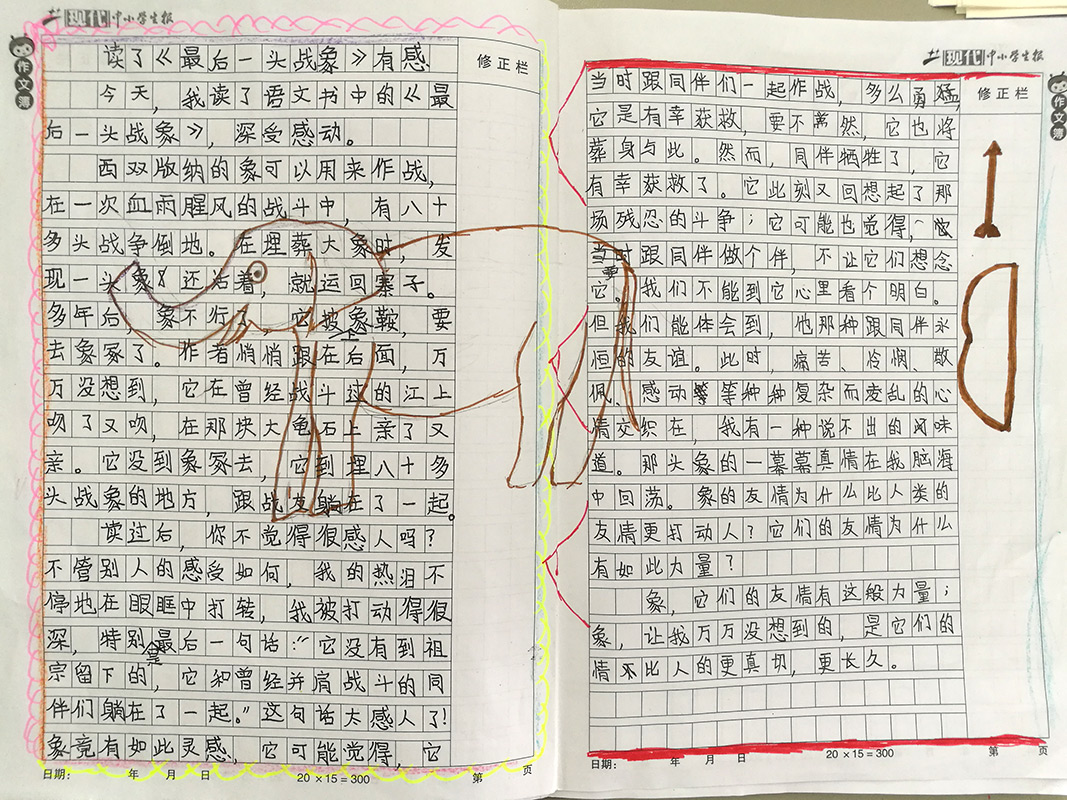 现代中小学生报
作文簿
修正栏
读了《最后一头战象》有感
今天，我读了语文书中的《最
后一头战象》，深受感动。
西双版纳的象可以用来作战，
在一次血雨腥风的战斗中，有八十
多头战争倒地。在埋葬大象时，发
现一头象还活着，就运回寨子。
多年后，象不行了，它披上象鞍，要
去象冢了。作者悄悄跟在后面，万
万没想到，它在曾经战斗过的江上
吻了又吻，在那块大龟石上亲了又
亲。它没到象冢去，它到埋八十多
头战象的地方，跟战友躺在了一起。
读过后，你不觉得很感人吗？
不管别人的感受如何，我的热泪不
停地在眼眶中打转，我被打动得很
深，特别是最后一句话：“它没有到祖
宗留下的，它和曾经并肩战斗的同
伴们躺在了一起。”这句话太感人了！
象竟有如此灵感，它可能觉得，它
日期： 年 月 日
20×15=300
第 页
现代中小学生报
作文簿
修正栏
当时跟同伴们一起作战，多么勇猛，
它是有幸获救，要不然，它也将
葬身与此。然而，同伴牺牲了，它
有幸获救了。它此刻又回想起了那
场残忍的斗争；它可能也觉得，
当时要跟同伴做个伴，不让它们想念
它。我们不能到它心里看个明白。
但我们能体会到，他那种跟同伴永
恒的友谊。此时，痛苦、怜悯、敬
佩、感动等种种复杂而变乱的心
情交织在，我有一种说不出的风味
道。那头象的一幕幕真情在我脑海
中回荡。象的友情为什么比人类的
友情更打动人？它们的友情为什么
有如此力量？
象，它们的友情有这般力量；
象，让我万万没想到的，是它们的
情不比人的更真切，更长久。
日期： 年 月 日
20×15=300
第 页